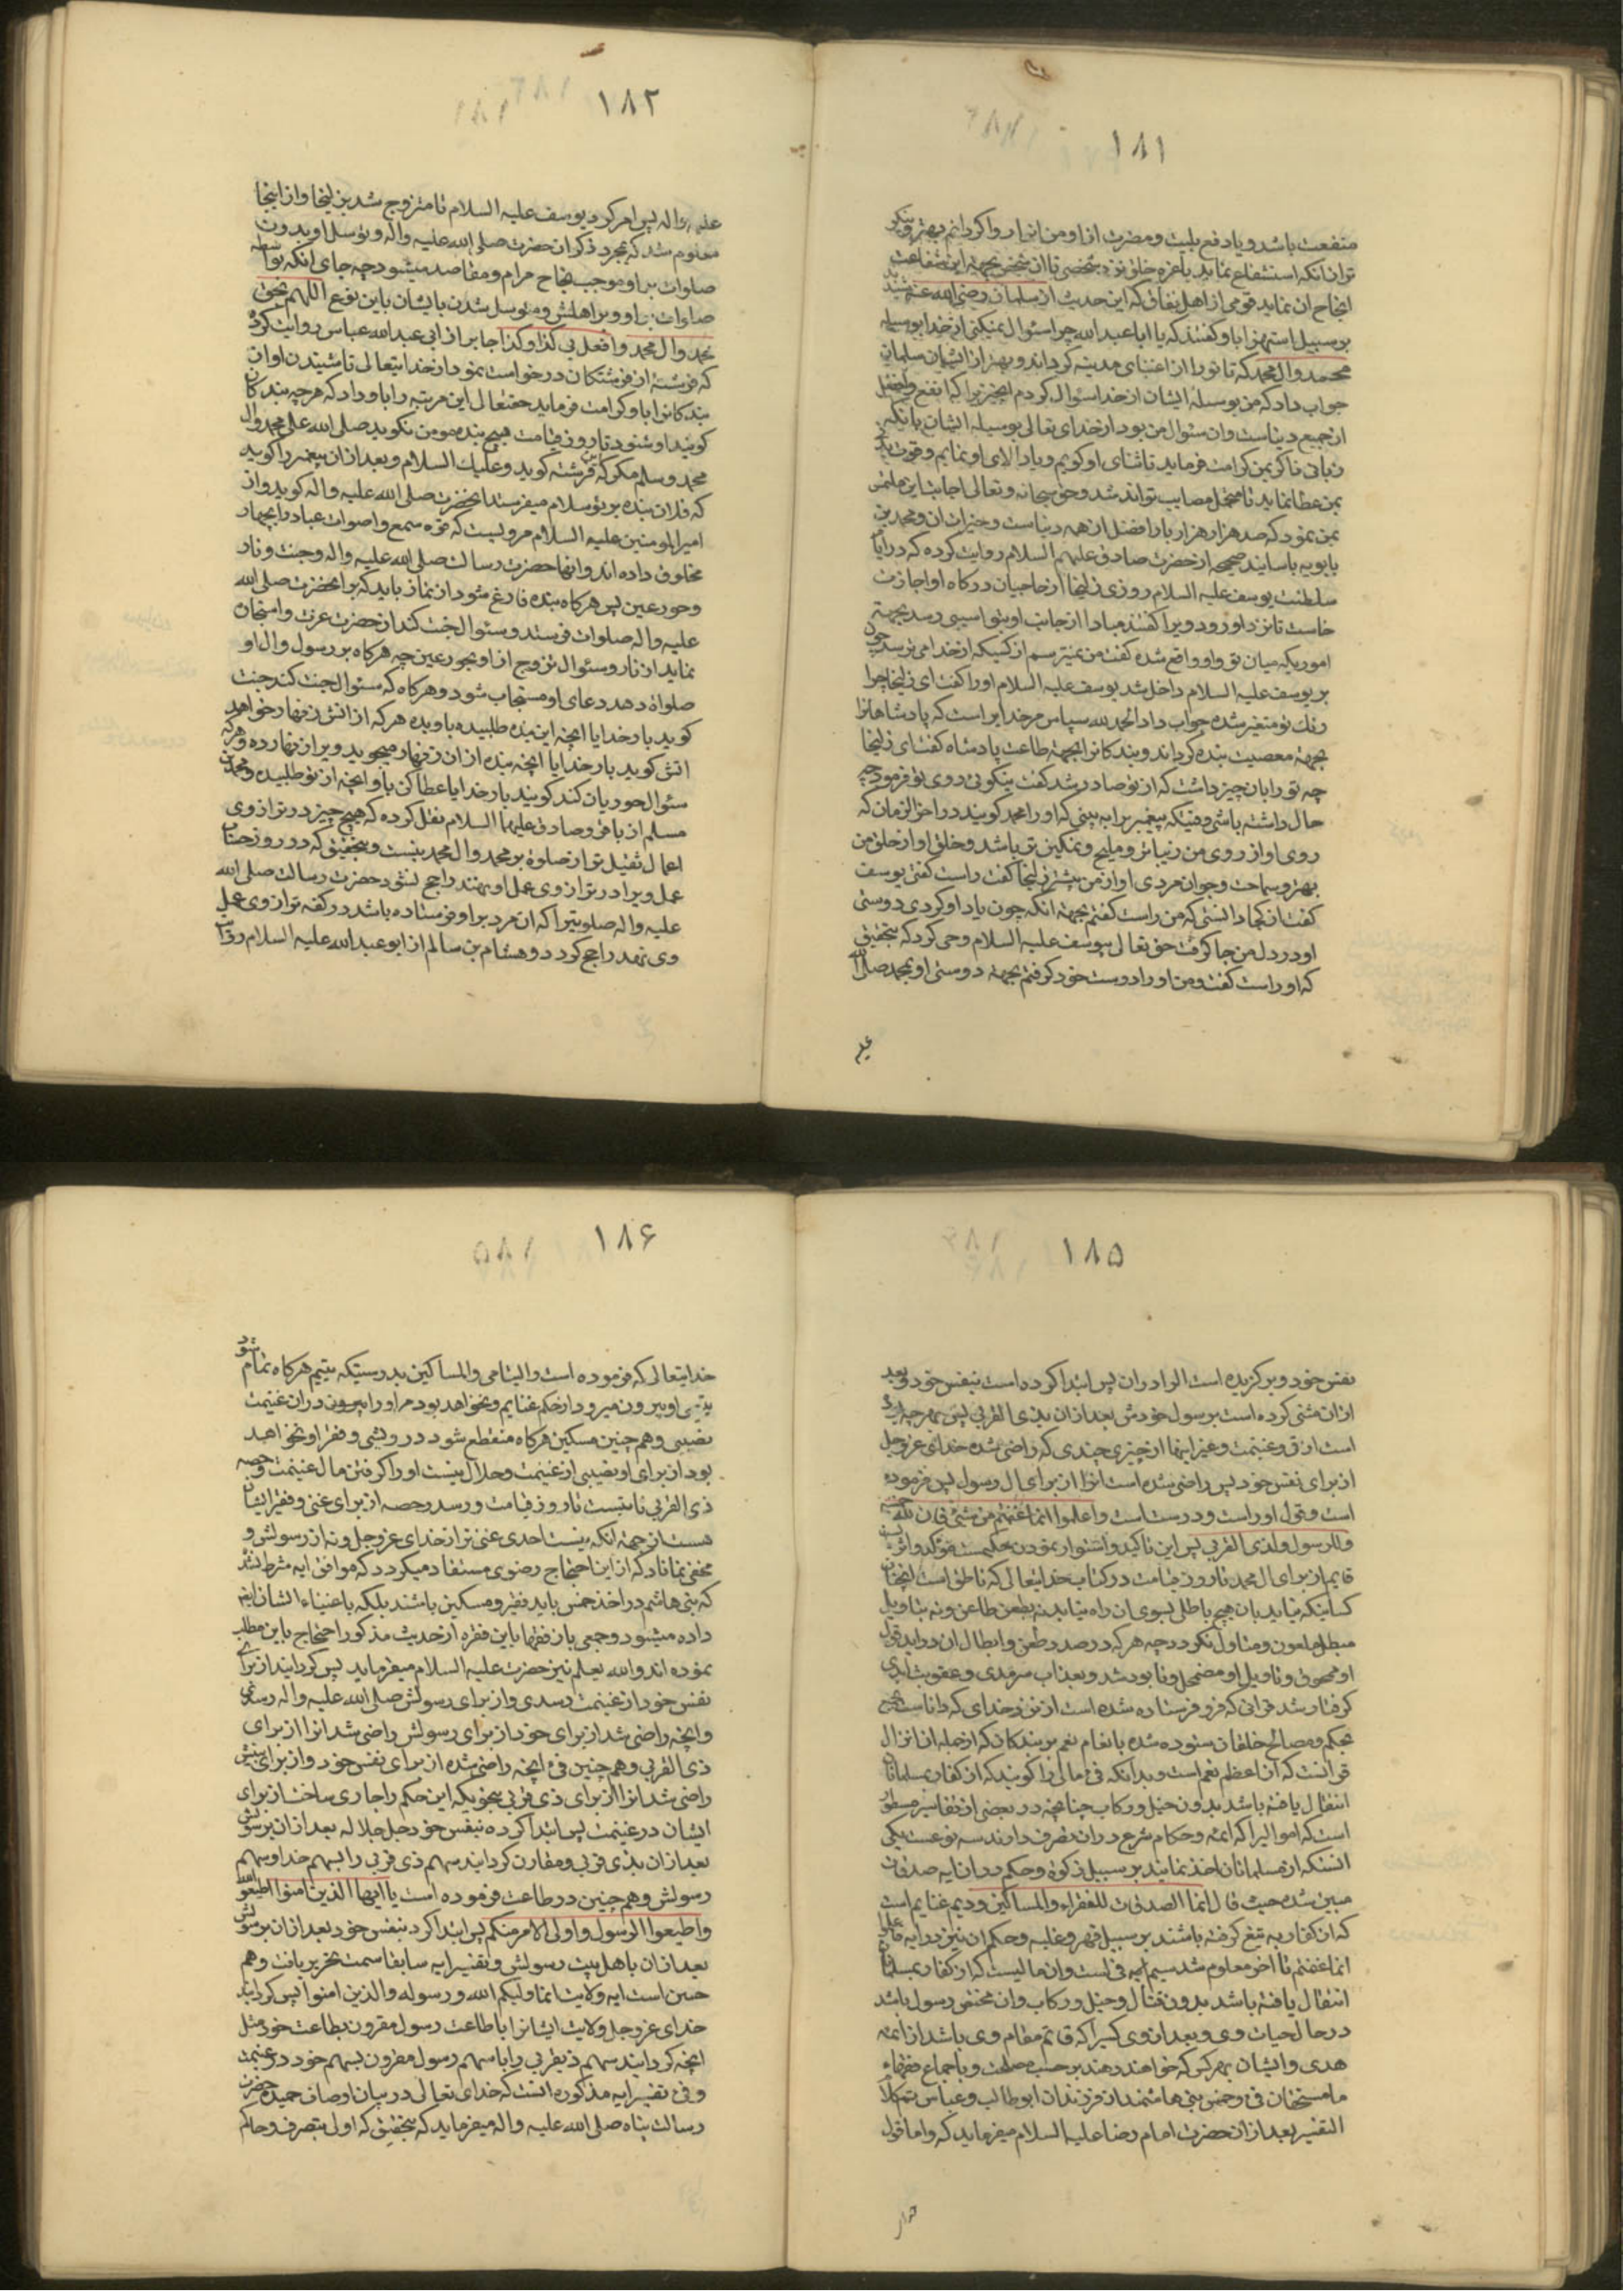 ۱۸۱
منفعت باشد و یا دفع بلیت و مضرت از او من انرا روا کردانم بهتر و نیکو
توان انکه استشفاع نماید باعزه خلق نزد شخصی تا ان شخص بجهة این شفاعت
انجاح ان نماید قومی از اهل نفاق که این حدیث از سلمان رضی الله عنه شنیدند
بر سبیل استهزا باو کفتند که یا ابا عبد الله چرا سئوال نمیکنی از خدا بوسیله
محمد و ال محمد که تا تو را از اغنیای مدینه کرداند و بهتر از ایشان سلمان
جواب داد که من بوسیلهٔ ایشان از خدا سئوال کردم انچیز را که انفع و افضل
از جمیع دنیاست و ان سئوال من بود از خدای تعالی بوسیله ایشان بانکه
زبانی ذاکر بمن کرامت فرماید تا ثنای او کویم و یاد الای او نمایم و قوت
بمن عطا نماید تا متحمل مصایب تواند شد و حق سبحانه و تعالی اجابت این ملتمس
بمن نمود که صد هزار هزار بار افضل از همه دنیاست و خیرات ان و محمد بن
بابویه باسانید صحیحه از حضرت صادق علیهم السلام روایت کرده که در ایام
سلطنت یوسف علیه السلام روزی زلیخا از حاجبان درکاه او اجازت
خاست تا نزد او رود ویرا کفتند مبادا از جانب او بتو اسیبی رسد بجهة
اموریکه میان تو و او واقع شده کفت من نمیترسم از کسیکه از خدا می ترسد چون
بر یوسف علیه السلام داخل شد یوسف علیه السلام او را کفت ای زلیخا چرا
رنک تو متغیر شده جواب داد الحمد لله سپاس مر خدایرا است که پادشاهانرا
بجهة معصیت بنده کرداند و بندکانرا بجهة طاعت پادشاه کفت ای زلیخا
چه تو را بان چیز داشت که از تو صادر شد کفت نیکوئی روی تو فرمود چه
حال داشته باشی وقتیکه پیغمبریرا به بینی که او را محمد کویند در اخر الزمان که
روی او از روی من زیباتر و ملیح و نمکین تر باشد و خلق او از خلق من
بهتر و سماحت و جوانمردی او از من بیشتر زلیخا کفت راست کفتی یوسف
کفت از کجا دانستی که من راست کفتم بجهة انکه چون یاد او کردی دوستی
او در دل من جا کرفت حق تعالی بیوسف علیه السلام وحی کرد که بتحقیق
که او راست کفت و من او را دوست خود کرفتم بجهة دوستی او بمحمد صلی الله
علیه
۱۸۲
علیه و اله پس امر کرد یوسف علیه السلام تا متزوج شد بزلیخا و از اینجا
معلوم شد که بمجرد ذکر ان حضرت صلی الله علیه و اله و توسل او بدون
صلوات بر او موجب نجاح مرام و مقاصد میشود چه جای انکه بواسطه
صلوات بر او و بر اهلش و متوسل شدن بایشان باین نوع اللهم بحق
محمد و ال محمد وافعل بی کذا و کذا جابر از ابی عبد الله عباس روایت کرده
که فرشتهٔ از فرشتکان درخواست نمود از خدایتعالی تا شنیدن اوان
بندکانرا باو کرامت فرماید حقتعالی این مرتبه را باو داد که هر چه بندکان
کویند او شنود تا روز قیامت هیچ بنده مومن نکوید صلی الله علی محمد و ال
محمد و سلم مکر که ان فرشته کوید و علیک السلام و بعد از ان پیغمبر را کوید
که فلان بنده بر تو سلام میفرستد انحضرت صلی الله علیه و اله کوید و از
امیر المومنین علیه السلام مرویست که قوه سمع و اصوات عباد را بچهار
مخلوق داده اند و انها حضرت رسالت صلی الله علیه و اله و جنت و نار
و حور عین پس هرکاه بنده فارغ شود از نماز باید که بر انحضرت صلی الله
علیه و اله صلوات فرستد و سئوال جنت کند از حضرت عزت و استجان
نماید از نار و سئوال تزوج از او بحور عین چه هرکاه بر رسول و ال او
صلواة دهد دعای او مستجاب شود و هرکاه که سئوال جنت کند جنت
کوید بار خدایا انچه این بنده طلبیده باو بده هرکه از اتش زنهار خواهد
اتش کوید بار خدایا انچه بنده از ان زنهار میجوید ویرا زنهار ده و هرکه
سئوال حوریان کند کویند بار خدایا عطا کن باو انچه از تو طلبیده و محمد بن
مسلم از باقر و صادق علیهما السلام نقل کرده که هیچ چیز در ترازوی
اعمال ثقیل تر از صلوة بر محمد و ال محمد نیست و بتحقیق که در روز حساب
عمل ویرا در ترازوی عمل او نهند راجح نشود حضرت رسالت صلی الله
علیه و اله صلوتیرا که ان مرد بر او فرستاده باشد در کفه ترازوی عمل
وی نهد راجح کردد و هشام بن سالم از ابو عبد الله علیه السلام روایت
۱۸۵
نفس خود و برکزیده است ال را در ان پس ابتدا کرده است بنفس خود و بعد
از ان مثنی کرده است برسول خودش بعد از ان بذی القربی پس بهر چه بوده
است از فئ و غنیمت و غیر اینها از چیزی چندی که راضی شده خدای عز و جل
از برای نفس خود پس راضی شده است انرا از برای ال رسول پس فرموده
است و قول او راست و درست است و اعلموا انما غنمتم من شئ فان لله خمسه
و للرسول ولذی القربی پس این تاکید و استوار نمودن محکمست مؤکد و اثریست
قایم از برای ال محمد تا روز قیامت در کتاب خدایتعالی که ناطق است انچنان
کتابیکه نیاید بان هیچ باطلی بسوی ان راه نیابد نه بطعن طاعن و نه بتاویل
مبطل ملعون و متاول نکردد چه هرکه در صدد طعن و ابطال ان در اید قول
او محوق و تاویل او مضمحل و نابود شد و بعذاب سرمدی و عقوبت ابدی
کرفتار شد قرانی که فرو فرستاده شده است از نزد خدای که دانا است
بحکم و مصالح خلقان ستوده شده بانعام نعم بر بندکان که از جمله ان انزال
قرانست که ان اعظم نعم است و بدانکه فئ مالی را کویند که از کفار بمسلمانان
انتقال یافته باشد بدون خیل و رکاب چنانچه در بعضی از تفاسیر مسطور
است که اموالیرا که ائمه و حکام شرع در ان تصرف دارند سه نوعست یکی
انستکه از مسلمانان اخذ نمایند بر سبیل زکوة و حکم در ان ایه صدقات
مبین شده حیث قال انما الصدقات للفقراء والمساکین و دیم غنایم است
که از کفار به تیغ کرفته باشند بر سبیل قهر و غلبه و حکم ان نیز در ایه واعلموا
انما غنمتم تا اخر معلوم شد سیم ایه فئست و ان مالیست که از کفار بمسلمانان
انتقال یافته باشد بدون قتال و خیل و رکاب و ان مختص رسول باشد
در حال حیات وی و بعد از وی کسیرا که قائم مقام وی باشد از ائمه
هدی و ایشان بهر کس که خواهند دهند بر حسب مصلحت و باجماع فقهاء
ما مستحقان فئ و خمس بنی هاشمند از فرزندان ابوطالب و عباس
التفسیر بعد از ان حضرت امام رضا علیه السلام میفرماید که و اما قول
۱۸۶
خدایتعالی که فرموده است والیتامی والمساکین بدرستیکه یتیم هرکاه تمام شود
یتیمی او بیرون میرود از حکم غنایم و نخواهد بود مر او را بیرون در ان غنیمت
نصیبی و هم چنین مسکین هرکاه منقطع شود درویشی و فقر او نخواهد
بود از برای او نصیبی از غنیمت و حلال نیست او را کرفتن مال غنیمت و حصه
ذی القربی ثابتست تا روز قیامت و رسد و حصه از برای غنی و فقیر ایشان
هست از جهة انکه نیست احدی غنی تر از خدای عز و جل و نه از رسولش و
مخفی نماناد که از این احتجاج رضوی مستفاد میکردد که موافق ایه شرط نشد
که بنی هاشم در اخذ خمس باید فقیر و مسکین باشند بلکه باغنیاء ایشان نیز
داده میشود و جمعی باز فقها باین فقره از حدیث مذکور احتجاج باین مطلب
نموده اند والله یعلم نیز حضرت علیه السلام میفرماید پس کردانید از برای
نفس خود از غنیمت رسدی و از برای رسولش صلی الله علیه و اله رسدی
و انچه راضی شد از برای خود از برای رسولش راضی شد انرا از برای
ذی القربی و هم چنین فئ انچه راضی شده از برای نفس خود و از برای نبیش
راضی شد انرا از برای ذی قربی بنحویکه این حکم را جاری ساخت از برای
ایشان در غنیمت پس ابتدا کرده بنفس خود جل جلاله بعد از ان برسولش
بعد از ان بذی قربی و مقارن کردانید سهم ذی قربی را بسهم خدا و سهم
رسولش و هم چنین در طاعت فرموده است یا ایها الذین امنوا اطیعوا الله
و اطیعوا الرسول و اولی الامر منکم پس ابتدا کرد بنفس خود بعد از ان برسولش
بعد از ان باهل بیت رسولش و تفسیر ایه سابقا سمت تحریر یافت و هم
چنین است ایه ولایت انما ولیکم الله و رسوله والذین امنوا پس کردانید
خدای عز و جل ولایت ایشانرا باطاعت رسول مقرون بطاعت خود مثل
انچه کردانید سهم ذیقربی را با سهم رسول مقرون بسهم خود در غنیمت
و فئ تفسیر ایه مذکوره انست که خدای تعالی در بیان اوصاف حمیده حضرت
رسالت پناه صلی الله علیه و اله میفرماید که بتحقیق که اولی بتصرف و حاکم